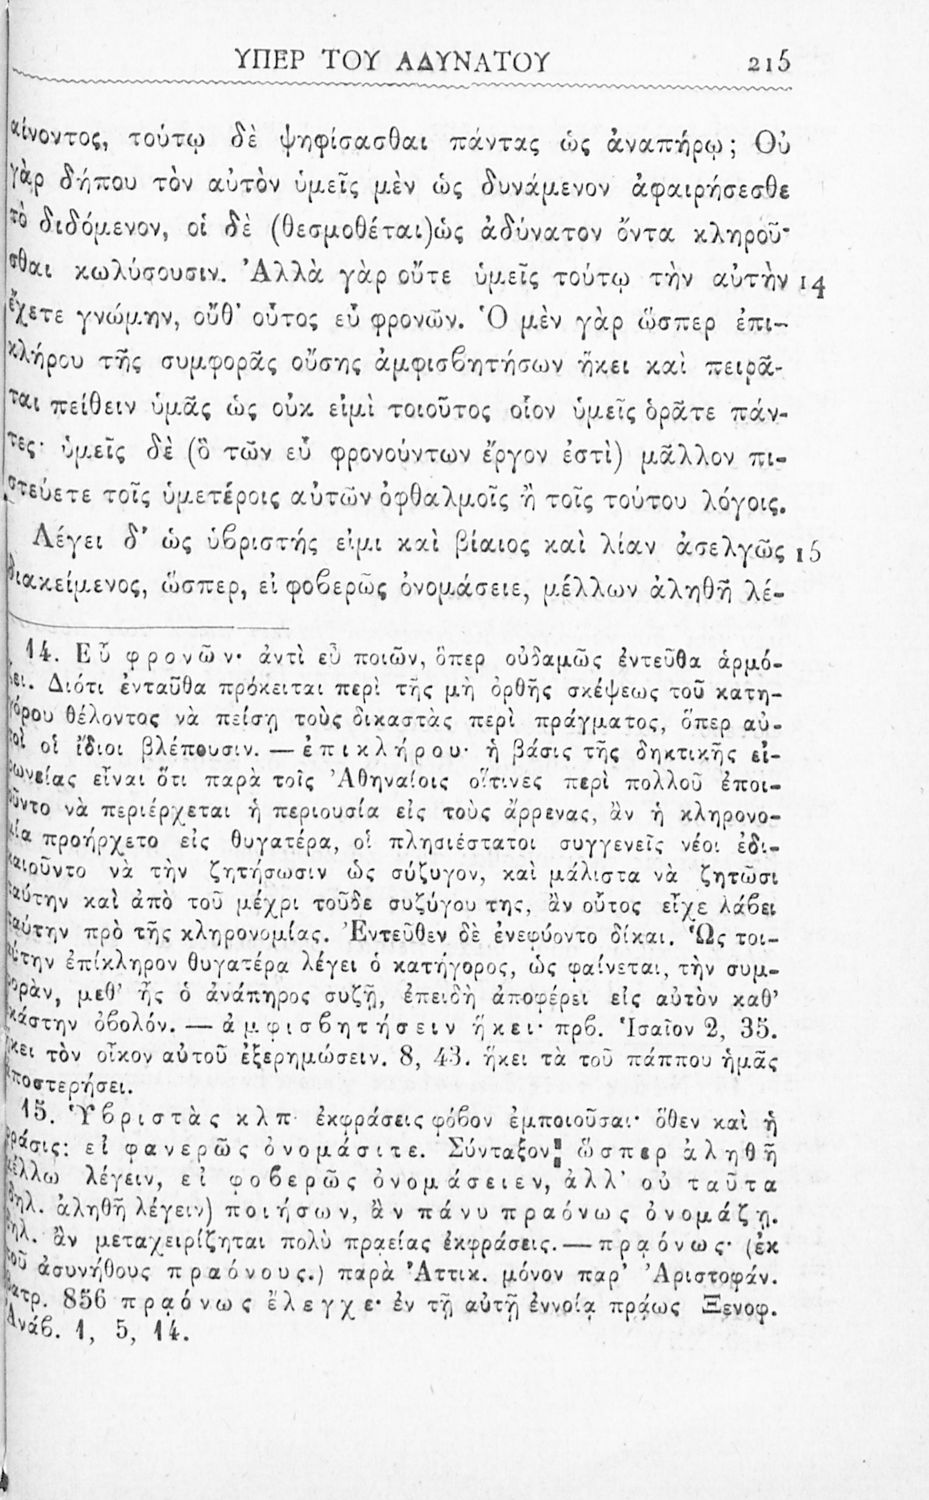 ΥΠΕΡ ΤΟΥ ΑΔΥΝΑΤΟΥ 215
αίνοντος, τούτῳ δὲ ψηφίσασθαι πάντας ὡς ἀναπήρῳ; Οὐ
γὰρ δήπου τὸν αὐτὸν ὑμεῖς μὲν ὡς δυνάμενον ἀφαιρήσεσθε
τὸ διδόμενον, οἱ δὲ (θεσμοθέται) ὡς ἀδύνατον ὄντα κληροῦ-
σθαι κωλύσουσιν. Ἀλλὰ γὰρ οὔτε ὑμεῖς τούτῳ τὴν αὐτὴν 14
ἔχετε γνώμην, οὔθ' οὗτος εὖ φρονῶν. Ὁ μὲν γὰρ ὥσπερ ἐπι-
κλήρου τῆς συμφορᾶς οὔσης ἀμφισϐητήσων ἥκει καὶ πειρᾶ-
ται πείθειν ὑμᾶς ὡς οὐκ εἰμὶ τοιοῦτος οἷον ὑμεῖς ὁρᾶτε πάν-
τες· ὑμεῖς δὲ (ὃ τῶν εὖ φρονούντων ἔργον ἐστὶ) μᾶλλον πι-
στεύετε τοῖς ὑμετέροις αὐτῶν ὀφθαλμοῖς ἢ τοῖς τούτου λόγοις.
Λέγει δ' ὡς ὑϐριστής εἰμι καὶ βίαιος καὶ λίαν ἀσελγῶς 15
διακείμενος, ὥσπερ, εἰ φοϐερῶς ὀνομάσειε, μέλλων ἀληθῆ λέ-
14. Εὖ φρονῶν· ἀντὶ εὖ ποιῶν, ὅπερ οὐδαμῶς ἐντεῦθα ἁρμό-
ζει. Διότι ἐνταῦθα πρόκειται περὶ τῆς μὴ ὀρθῆς σκέψεως τοῦ κατη-
γόρου θέλοντος νὰ πείσῃ τοὺς δικαστὰς περὶ πράγματος, ὅπερ αὐ-
τοὶ οἱ ἴδιοι βλέπουσιν. — ἐπικλήρου· ἡ βάσις τῆς δηκτικῆς εἰ-
ρωνείας εἶναι ὅτι παρὰ τοῖς Ἀθηναίοις οἵτινες περὶ πολλοῦ ἐποι-
οῦντο νὰ περιέρχεται ἡ περιουσία εἰς τοὺς ἄρρενας, ἂν ἡ κληρονο-
μία προήρχετο εἰς θυγατέρα, οἱ πλησιέστατοι συγγενεῖς νέοι ἐδι-
καιοῦντο νὰ τὴν ζητήσωσιν ὡς σύζυγον, καὶ μάλιστα νὰ ζητῶσι
ταύτην καὶ ἀπὸ τοῦ μέχρι τοῦδε συζύγου της, ἂν οὗτος εἶχε λάϐει
ταύτην πρὸ τῆς κληρονομίας. Ἐντεῦθεν δὲ ἐνεφύοντο δίκαι. Ὡς τοι-
αύτην ἐπίκληρον θυγατέρα λέγει ὁ κατήγορος, ὡς φαίνεται, τὴν συμ-
φορὰν, μεθ' ἧς ὁ ἀνάπηρος συζῇ, ἐπειδὴ ἀποφέρει εἰς αὐτὸν καθ'
ἑκάστην ὀϐολόν. — ἀμφισϐητήσειν ἥκει· πρϐ. Ἰσαῖον 2, 35.
ἥκει τὸν οἶκον αὐτοῦ ἐξερημώσειν. 8, 43. ἥκει τὰ τοῦ πάππου ἡμᾶς
ἀποστερήσει.
15. Ὑϐριστὰς κλπ· ἐκφράσεις φόϐον ἐμποιοῦσαι· ὅθεν καὶ ἡ
φράσις: εἰ φανερῶς ὀνομάσιτε. Σύνταξον: ὥσπερ ἀληθῆ
μέλλω λέγειν, εἰ φοϐερῶς ὀνομάσειεν, ἀλλ' οὐ ταῦτα
δηλ. ἀληθῆ λέγειν) ποιήσων, ἂν πάνυ πραόνως ὀνομάζῃ.
δηλ. ἂν μεταχειρίζηται πολὺ πραείας ἐκφράσεις. — πραόνως· (ἐκ
τοῦ ἀσυνήθους πραόνους.) παρὰ Ἀττικ. μόνον παρ' Ἀριστοφάν.
Βατρ. 856 πραόνως ἔλεγχε· ἐν τῇ αὐτῇ ἐννοίᾳ πράως Ξενοφ.
Ἀνάϐ. 1, 5, 14.